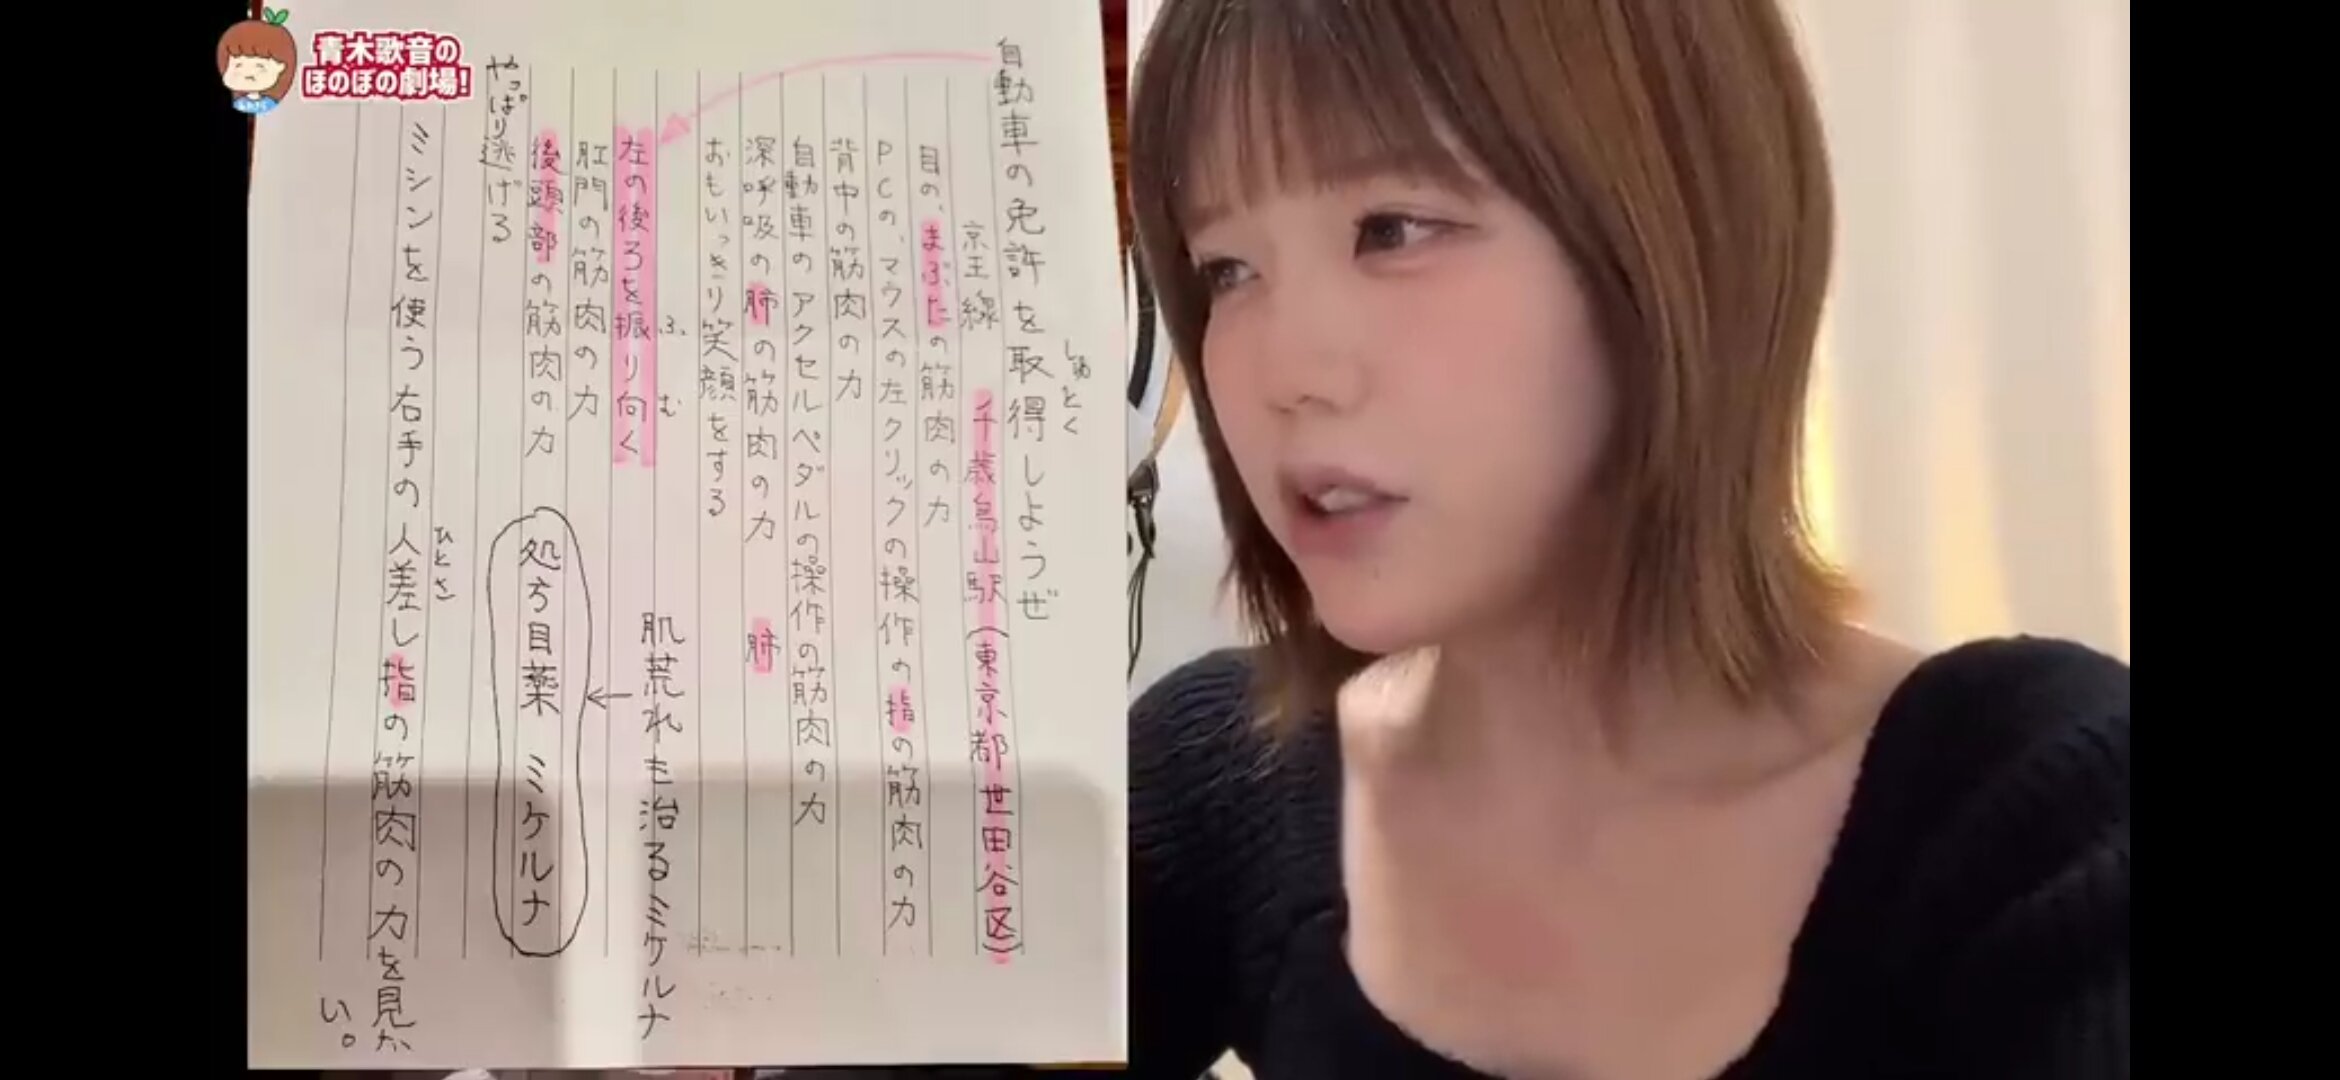 青木歌音の
ほのぼの劇場!
自動車の免許を取得しようぜ
しゅとく
京王線 千歳烏山駅(東京都世田谷区)
目の、まぶたの筋肉の力
PCの、マウスの左クリックの操作の指の筋肉の力
背中の筋肉の力
自動車のアクセルペダルの操作の筋肉の力
深呼吸の肺の筋肉の力 肺
おもいっきり笑顔をする
ふ む
左の後ろを振り向く
肌荒れも治るミケルナ
肛門の筋肉の力
後頭部の筋肉の力
処方目薬 ミケルナ
やっぱり逃げる
ひとさ
ミシンを使う右手の人差し指の筋肉の力を見たい。